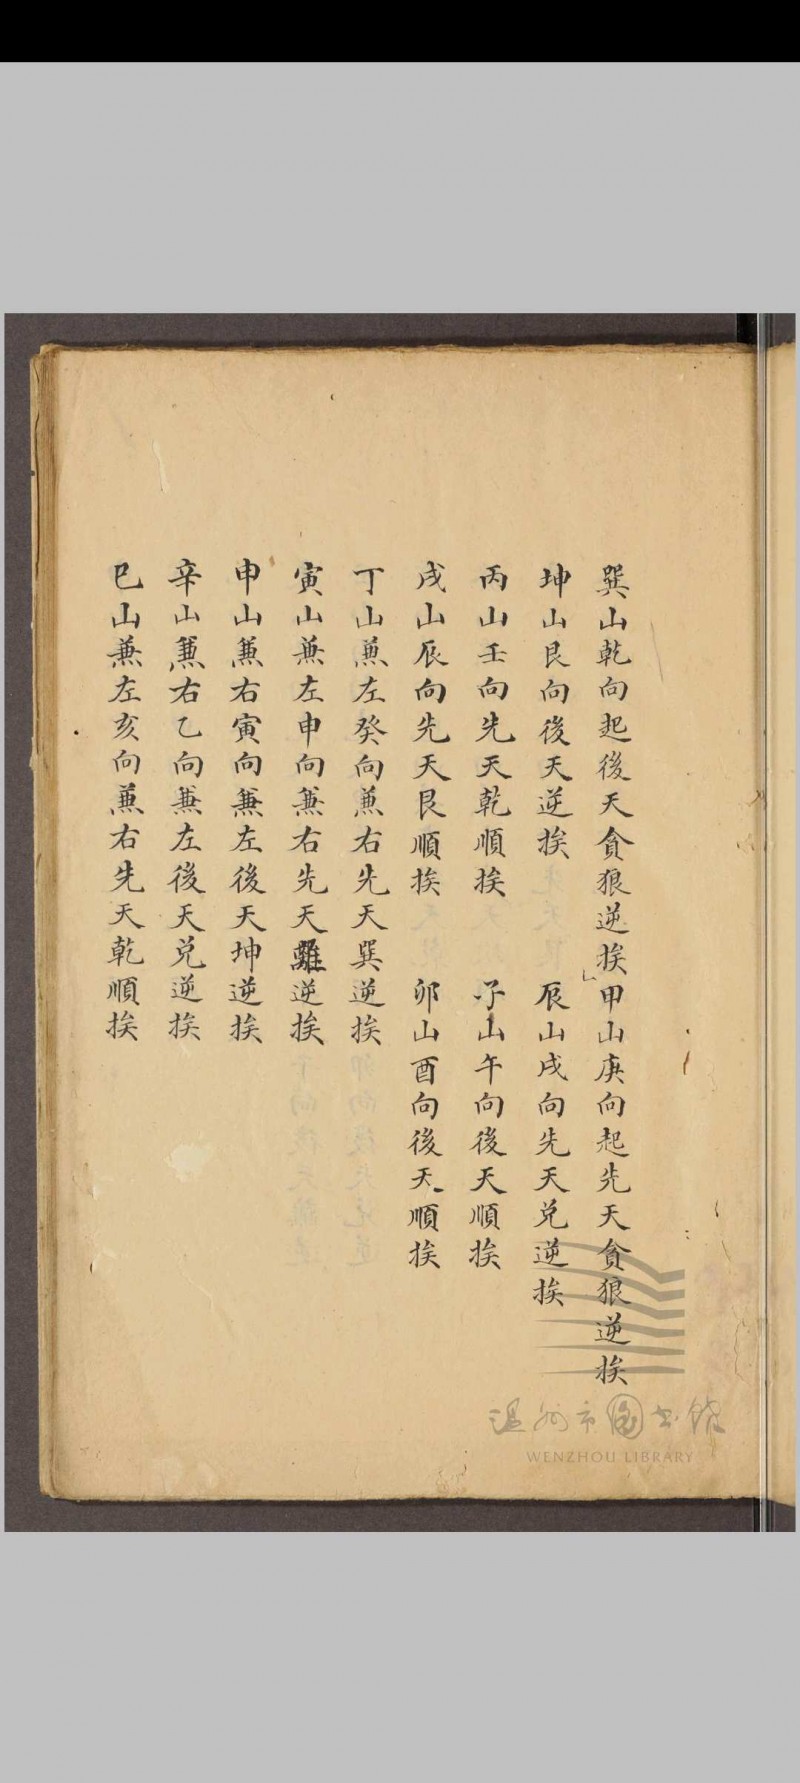 巽山乾向起後天貪狼逆挨 甲山庚向起先天貪狼逆挨
坤山艮向後天逆挨 辰山戌向先天兌逆挨
丙山壬向先天乾順挨 子山午向後天順挨
戌山辰向先天艮順挨 卯山酉向後天順挨
丁山兼左癸向兼右先天巽逆挨
寅山兼左申向兼右先天離逆挨
申山兼右寅向兼左後天坤逆挨
辛山兼右乙向兼左後天兌逆挨
巳山兼左亥向兼右先天乾順挨
温州市图书馆
WENZHOU LIBRARY